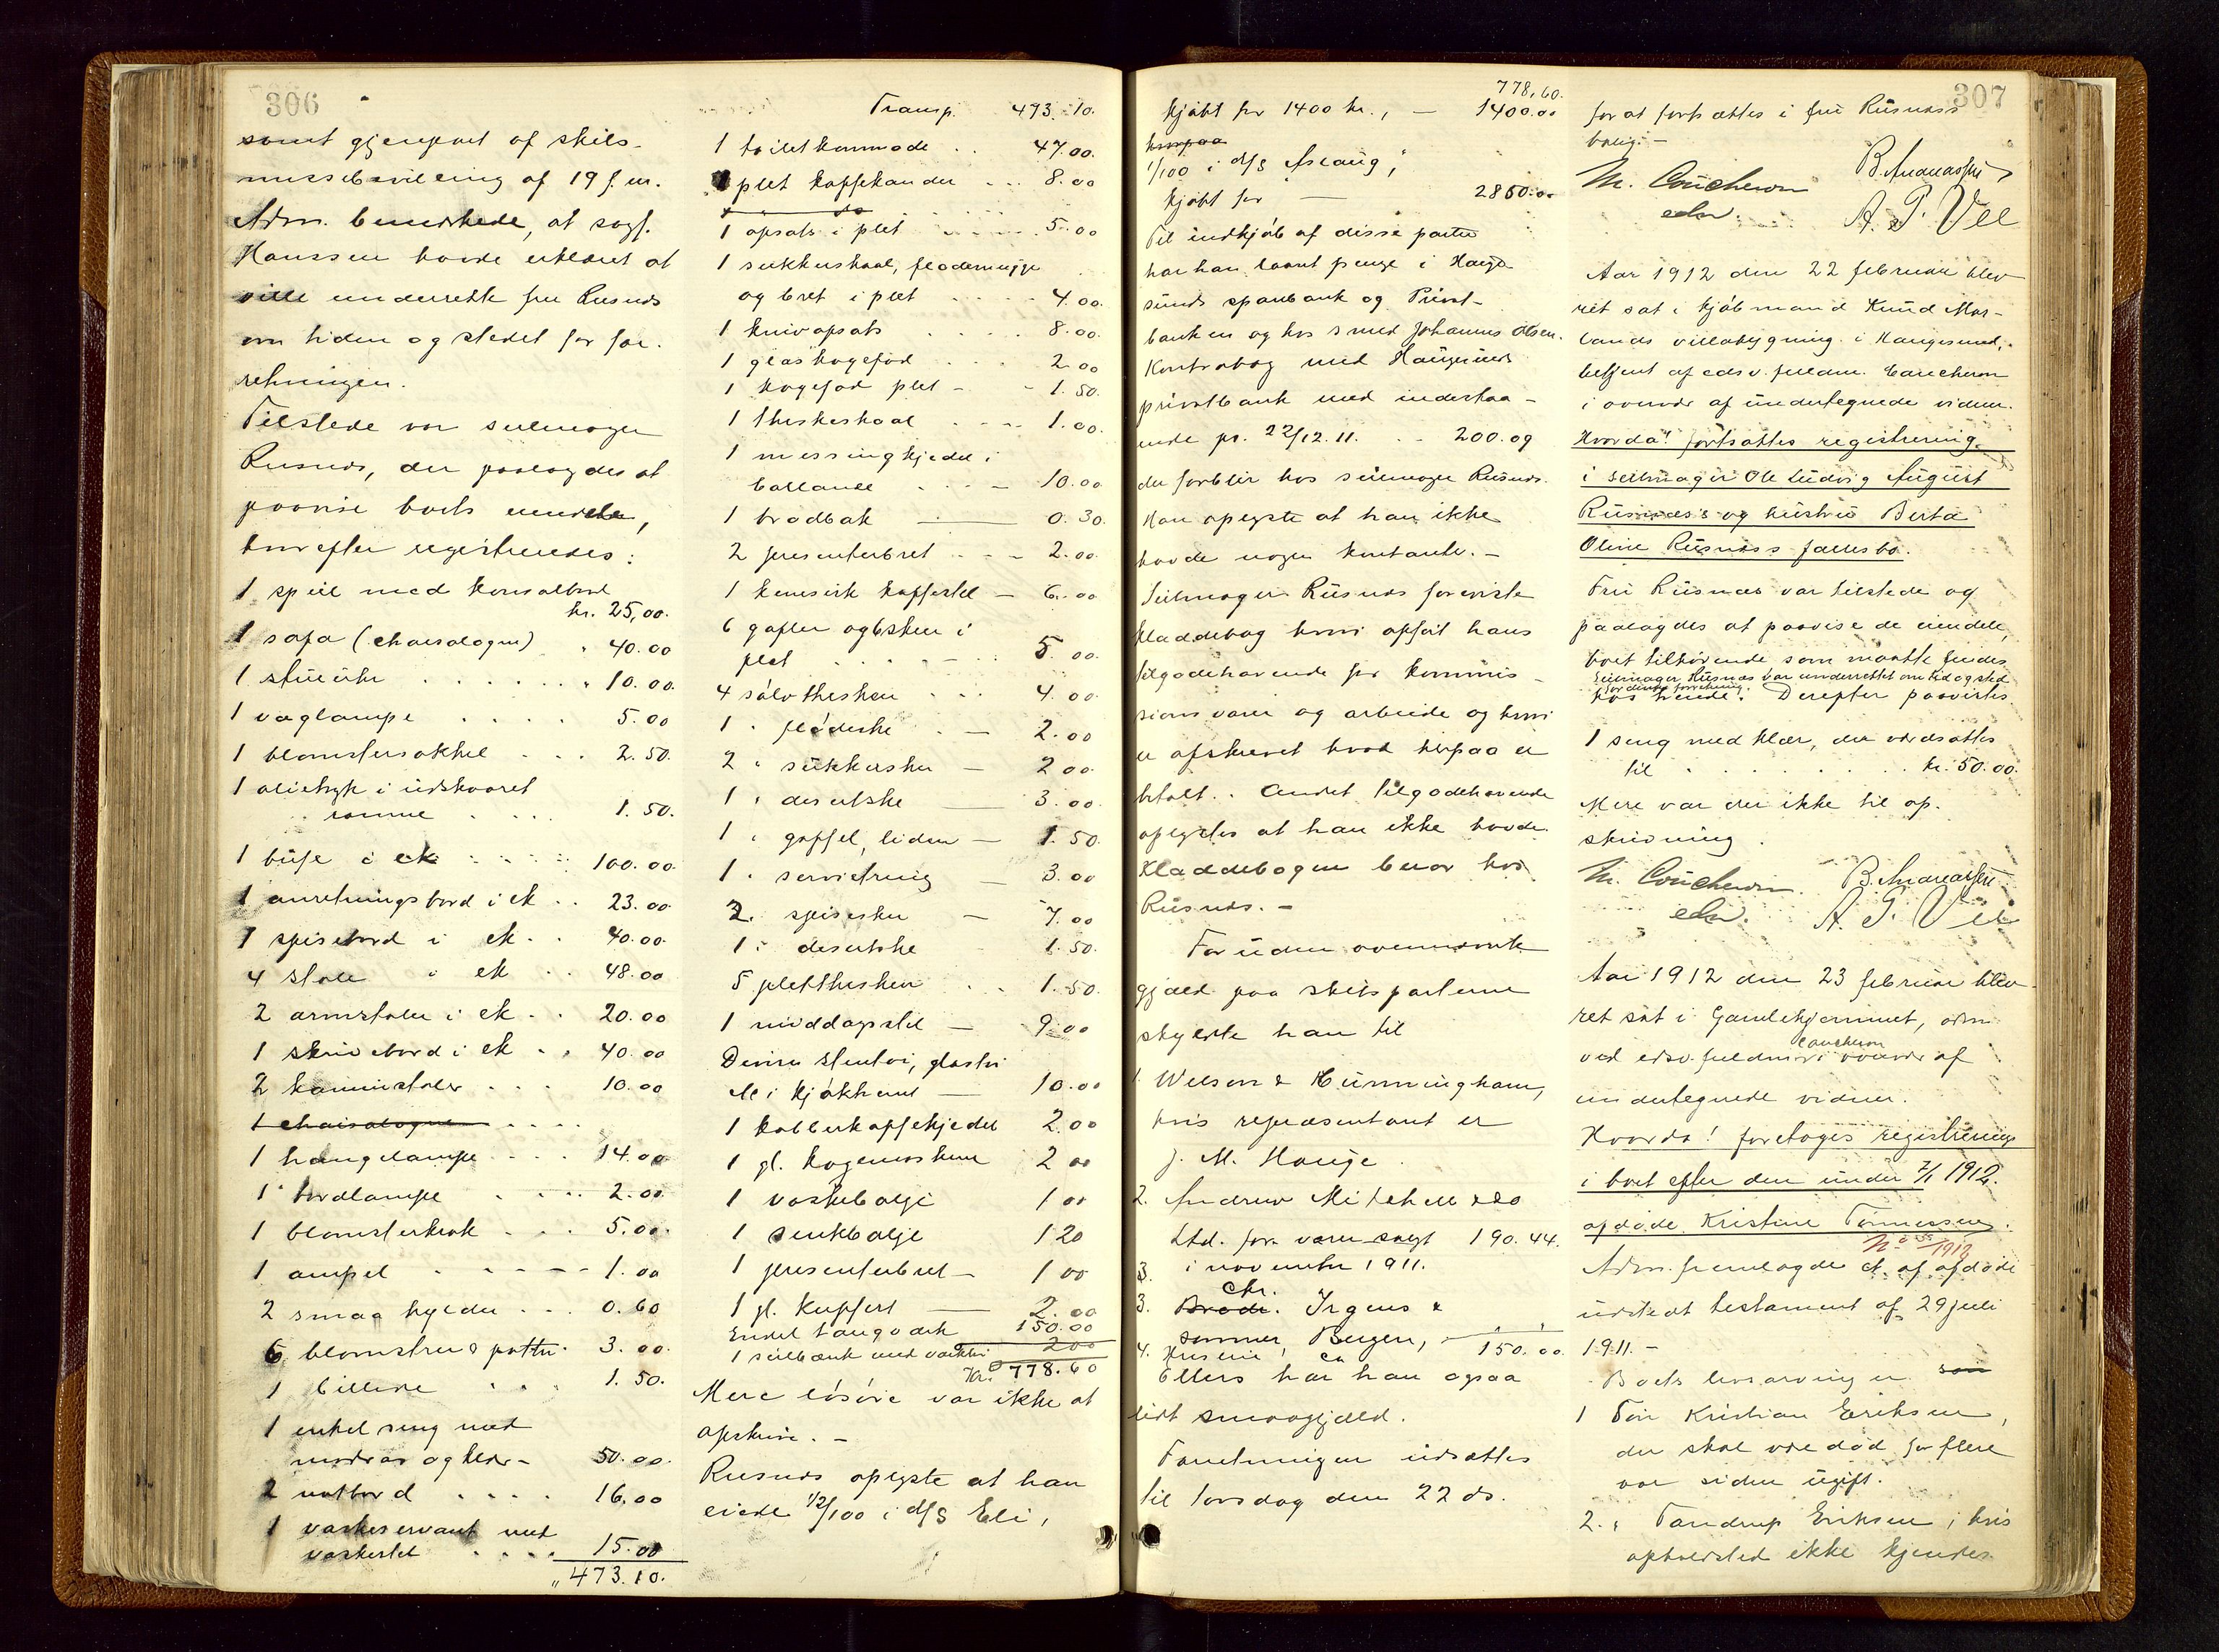 306
samt gjenpart af skils-
missebevilling af 19 f. m.
Adm. bemerkede, at sagf.
Hanssen havde erklæret at
ville underrette fru Rusnæs
om tiden og stedet for for-
retningen.
Tilstede var seilmager
Rusnæs, der paalagdes at
paavise boets eiendele,
hvorefter registreredes:
1 speil med konsolbord
kr. 25,00.
1 sofa (chaisalogne) " 40.00
1 stueuhr . . . . . . " 10.00.
1 væglampe . . . . 5.00
1 blomstersøkkel . . . 2.50.
1 olietryk i udskaaret
ramme . . . . 1.50.
1 buffe i ek . . . . . 100.00.
1 anretningsbord i ek . . 23.00
1 spisebord i ek . . 40.00.
4 stole " ek . . 48.00
2 armstoler i ek . . 20.00
1 skrivebord i ek . . 40.00
2 kaminstoler . . . 10.00
1 chaisalogne . . . .
1 hængelampe . . . . 14.00
1 bordlampe . . . . 2.00
1 blomsterkrak . . . 5.00.
1 ampel . . . . . 1.00
2 smaa hylder . . . 0.60
6 blomstrer & potter . 3.00.
1 billede . . . 1.50.
1 enkel seng med
madras og klær - 50.00.
2 natbord . . . . 16.00
1 vaskeservant med
vaskestel . . . . 15.00
" 473.10.
Transp. 473.10.
1 toiletkommode . . 47.00.
1 plet kaffekander . . . 8.00
1 opsats i plet . . . . . 5.00
1 sukkerskaal, flødemugge
og bret i plet . . . . . 4.00.
1 knivopsats . . . . 8.00.
1 glas kagefad . . . . 2.00
1 kagefad plet - - 1.50.
1 theskeskaal . . . . 1.00.
1 messingkjedel i
ballance . . . - 10.00
1 brødbak — 0.30.
2 presenterbret . . . - 2.00.
1 kinesisk kaffestel - 6.00
6 gafler og 6 skeer i
plet . . . . - . . 5.00.
4 sølvtheskeer . . . 4.00
1 " flødeske . - 2.00
2 " sukkerskeer — 2 00.
1 " desertske — 3.00
1 " gaffel, liden — 1.50.
1 " servietring — 3.00
2. spiseskeer — 7.00
1 " desertske 1.50.
5 plettheskeer . . 1.50.
1 middagsstel — 9.00
Diverse stentøi, glastøi
alt i kjøkkenet — 10.00
1 kobberkaffekjedel 2.00
1 gl. kogemaskine 2 00
1 vaskebalje 1 00
1 sinkbalje 1 20
1 presenterbret — 1 00
1 gl. kuffert — 2.00
Endel taugværk 150.00
1 seilbænk med værktøi 2 00
Kr. 778.60
Mere løsøre var ikke at
opskrive. -
Rusnæs oplyste at han
eiede 1/2/100 i d/s Eli,
307
778,60.
kjøbt for 1400 kr., — 1400.00
hvorpaa
1/100 i d/s Aslaug,
kjøbt for — 2850.00
Til indkjøb af disse parter
har han laant penge i Hauge-
sunds sparebank og Privat-
banken og hos smed Johannes Olsen.
Kontrabog med Haugesunds
privatbank med indestaa-
ende pr. 22/12.11. . . 200.09
der forblir hos seilmager Rusnæs.
Han oplyste at han ikke
havde nogen kontanter. -
Seilmager Rusnæs foreviste
kladdebog hvori opført hans
tilgodehavende for kommis-
sions varer og arbeide og hvori
er afskrevet hvad herpaa er
betalt. Andet tilgodehavende
oplystes at han ikke havde.
Kladdebogen beror hos
Rusnæs. -
Foruden ovennævnte
gjæld paa skibsparterne
skyldte han til
1. Wilson & Kunningham,
hvis repræsentant er
J. M. Hauge.
2. Andrew Mitchell & Co
Ltd. for varer solgt 190.44.
i november 1911.
3. Chr.
3. Brødr. Irgens &
sønner, Bergen, —
4. Husleie, ca 150.00.
Ellers har han ogsaa
lidt smaagjæld.
Forretningen udsættes
til torsdag den 22 ds.
for at fortsættes i fru Rusnæs's
bolig. -
M. Coucheron B. Andreassen
edsv. A. P. Vee
Aar 1912 den 22 februar blev
ret sat i kjøbmand Knud Mar-
lands villabygning i Haugesund,
betjent af edsv. fuldm. Coucheron
i overvær af undertegnede vidner.
Hvorda! fortsattes registrering
i seilmager Ole Ludvig August
Rusnæs's og hustru Berta
Oline Rusnæs's fællesbo.
Fru Rusnæs var tilstede og
paalagdes at paavise de eiendele,
boet tilhørende, som maatte findes
Seilmager Rusnæs var underrettet om tid og sted
for denne forretning.
hos hende. Derefter paavistes
1 seng med klær, der værdsattes
til . . . . . . . kr. 50.00.
Mere var der ikke til op-
skrivning.
M. Coucheron. B. Andreassen
edsv. A. P. Vee
Aar 1912 den 23 februar blev
ret sat i Gamlehjemmet, adm.
ved edsv. fuldm. Coucheron i overvær af
undertegnede vidner.
Hvorda! foretoges registrering
i boet efter den under 7/1 1912.
afdøde Kristine Tønnessen.
1912
Adm. fremlagde af afdøde
udstedt testament af 29 juli
1911. -
Boets livsarving er som
1 Tør Kristian Eriksen,
der skal være død for flere
aar siden ugift.
2. " Tandrup Eriksen, hvis
opholdsted ikke kjendes.